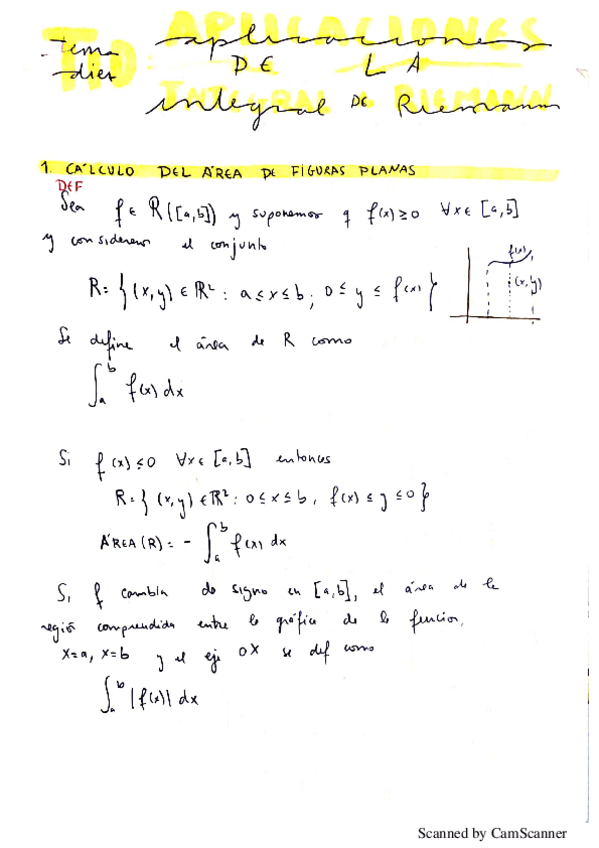 T10: APLICACIONES
INTEGRAL DE RIEMANN
- tema
diez
aplicaciones
DE LA
integral DE Riemann
1. CÁLCULO DEL ÁREA DE FIGURAS PLANAS
DEF
Sea f ∈ R([a,b]) y suponemos q f(x) ≥ 0 ∀x ∈ [a,b]
y consideremos el conjunto
R = { (x,y) ∈ ℝ² : a ≤ x ≤ b ; 0 ≤ y ≤ f(x) }
f(x)
(x,y)
Se define el área de R como
∫ₐᵇ f(x) dx
Si f(x) ≤ 0 ∀x ∈ [a,b] entonces
R = { (x,y) ∈ ℝ² : 0 ≤ x ≤ b, f(x) ≤ y ≤ 0 }
ÁREA (R) = - ∫ₐᵇ f(x) dx
Si f cambia de signo en [a,b], el área de la
región comprendida entre la gráfica de la función,
x=a, x=b y el eje OX se def como
∫ₐᵇ |f(x)| dx
Scanned by CamScanner